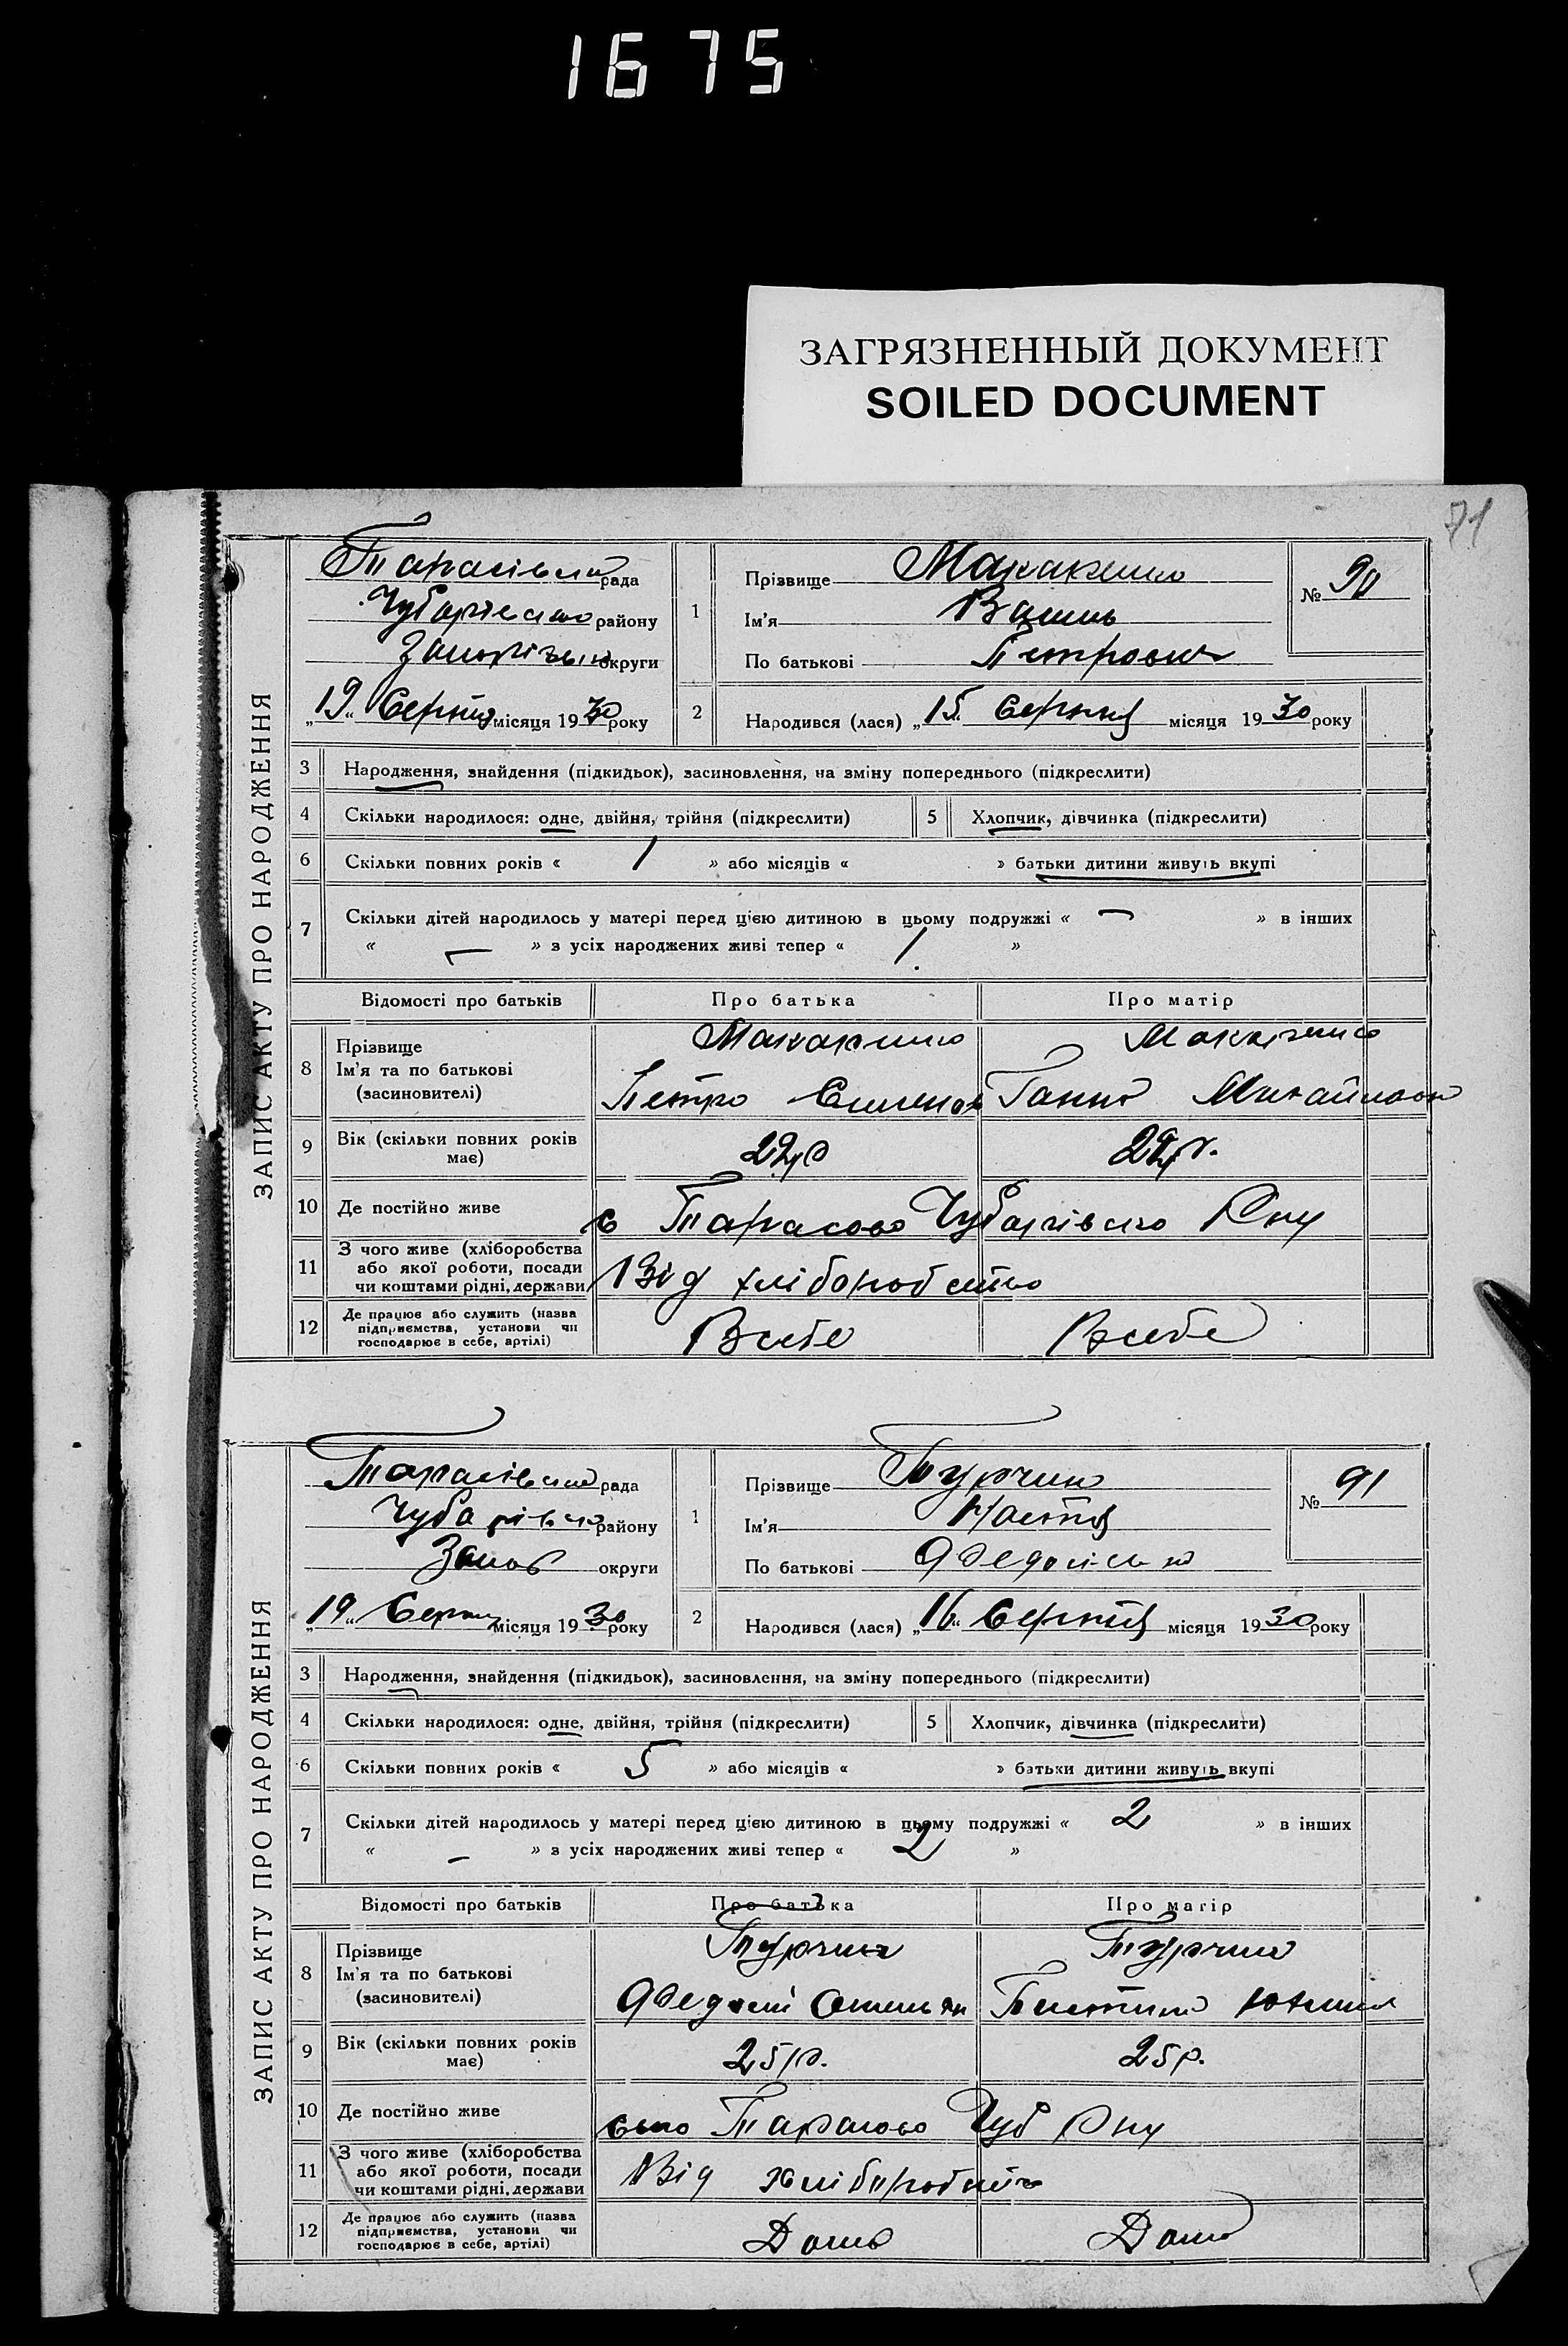 1675
ЗАГРЯЗНЕННЫЙ ДОКУМЕНТ
SOILED DOCUMENT
71
ЗАПИС АКТУ ПРО НАРОДЖЕННЯ
Тарасівська рада
Чубарівсько району
округи
„19“ Серпня місяця 1930 року
1
Прізвище Макаренко
Ім'я
По батькові Петрович
№ 90
2
Народився (лася) „15“ Серпня місяця 1930 року
3 Народження, знайдення (підкидьок), засиновлення, на зміну попереднього (підкреслити)
4 Скільки народилося: одне, двійня, трійня (підкреслити)
5 Хлопчик, дівчинка (підкреслити)
6 Скільки повних років « 1 » або місяців « » батьки дитини живуть вкупі
7 Скільки дітей народилось у матері перед цією дитиною в цьому подружжі « — » в інших
« — » з усіх народжених живі тепер « 1 »
Відомості про батьків Про батька Про матір
8 Прізвище
Ім'я та по батькові
(засновителі)
Макаренко
Петро Семенов
Макаренко
Ганна Михайловн
9 Вік (скільки повних років
має)
22р
22р.
10 Де постійно живе
с Тарасово Чубарівсько Рну
11 З чого живе (хліборобства
або якої роботи, посади
чи коштами рідні, держави
Від хліборобство
12 Де працює або служить (назва
підприємства, установи чи
господарює в себе, артілі)
В себе
В себе
ЗАПИС АКТУ ПРО НАРОДЖЕННЯ
Тарасівська рада
Чубарівсько району
Запор округи
„19“ Серпня місяця 1930 року
1
Прізвище Турчин
Ім'я Настя
По батькові
№ 91
2
Народився (лася) „16“ Серпня місяця 1930 року
3 Народження, знайдення (підкидьок), засиновлення, на зміну попереднього (підкреслити)
4 Скільки народилося: одне, двійня, трійня (підкреслити)
5 Хлопчик, дівчинка (підкреслити)
6 Скільки повних років « 5 » або місяців « » батьки дитини живуть вкупі
7 Скільки дітей народилось у матері перед цією дитиною в цьому подружжі « 2 » в інших
« — » з усіх народжених живі тепер « 2 »
Відомості про батьків Про батька Про матір
8 Прізвище
Ім'я та по батькові
(засиновителі)
Турчин
Турчин
9 Вік (скільки повних років
має)
25р.
25р.
10 Де постійно живе
село Тарасово Чуб Рну
11 З чого живе (хліборобства
або якої роботи, посади
чи коштами рідні, держави
Від хліборобство
12 Де працює або служить (назва
підприємства, установи чи
господарює в себе, артілі)
Дома
Дома